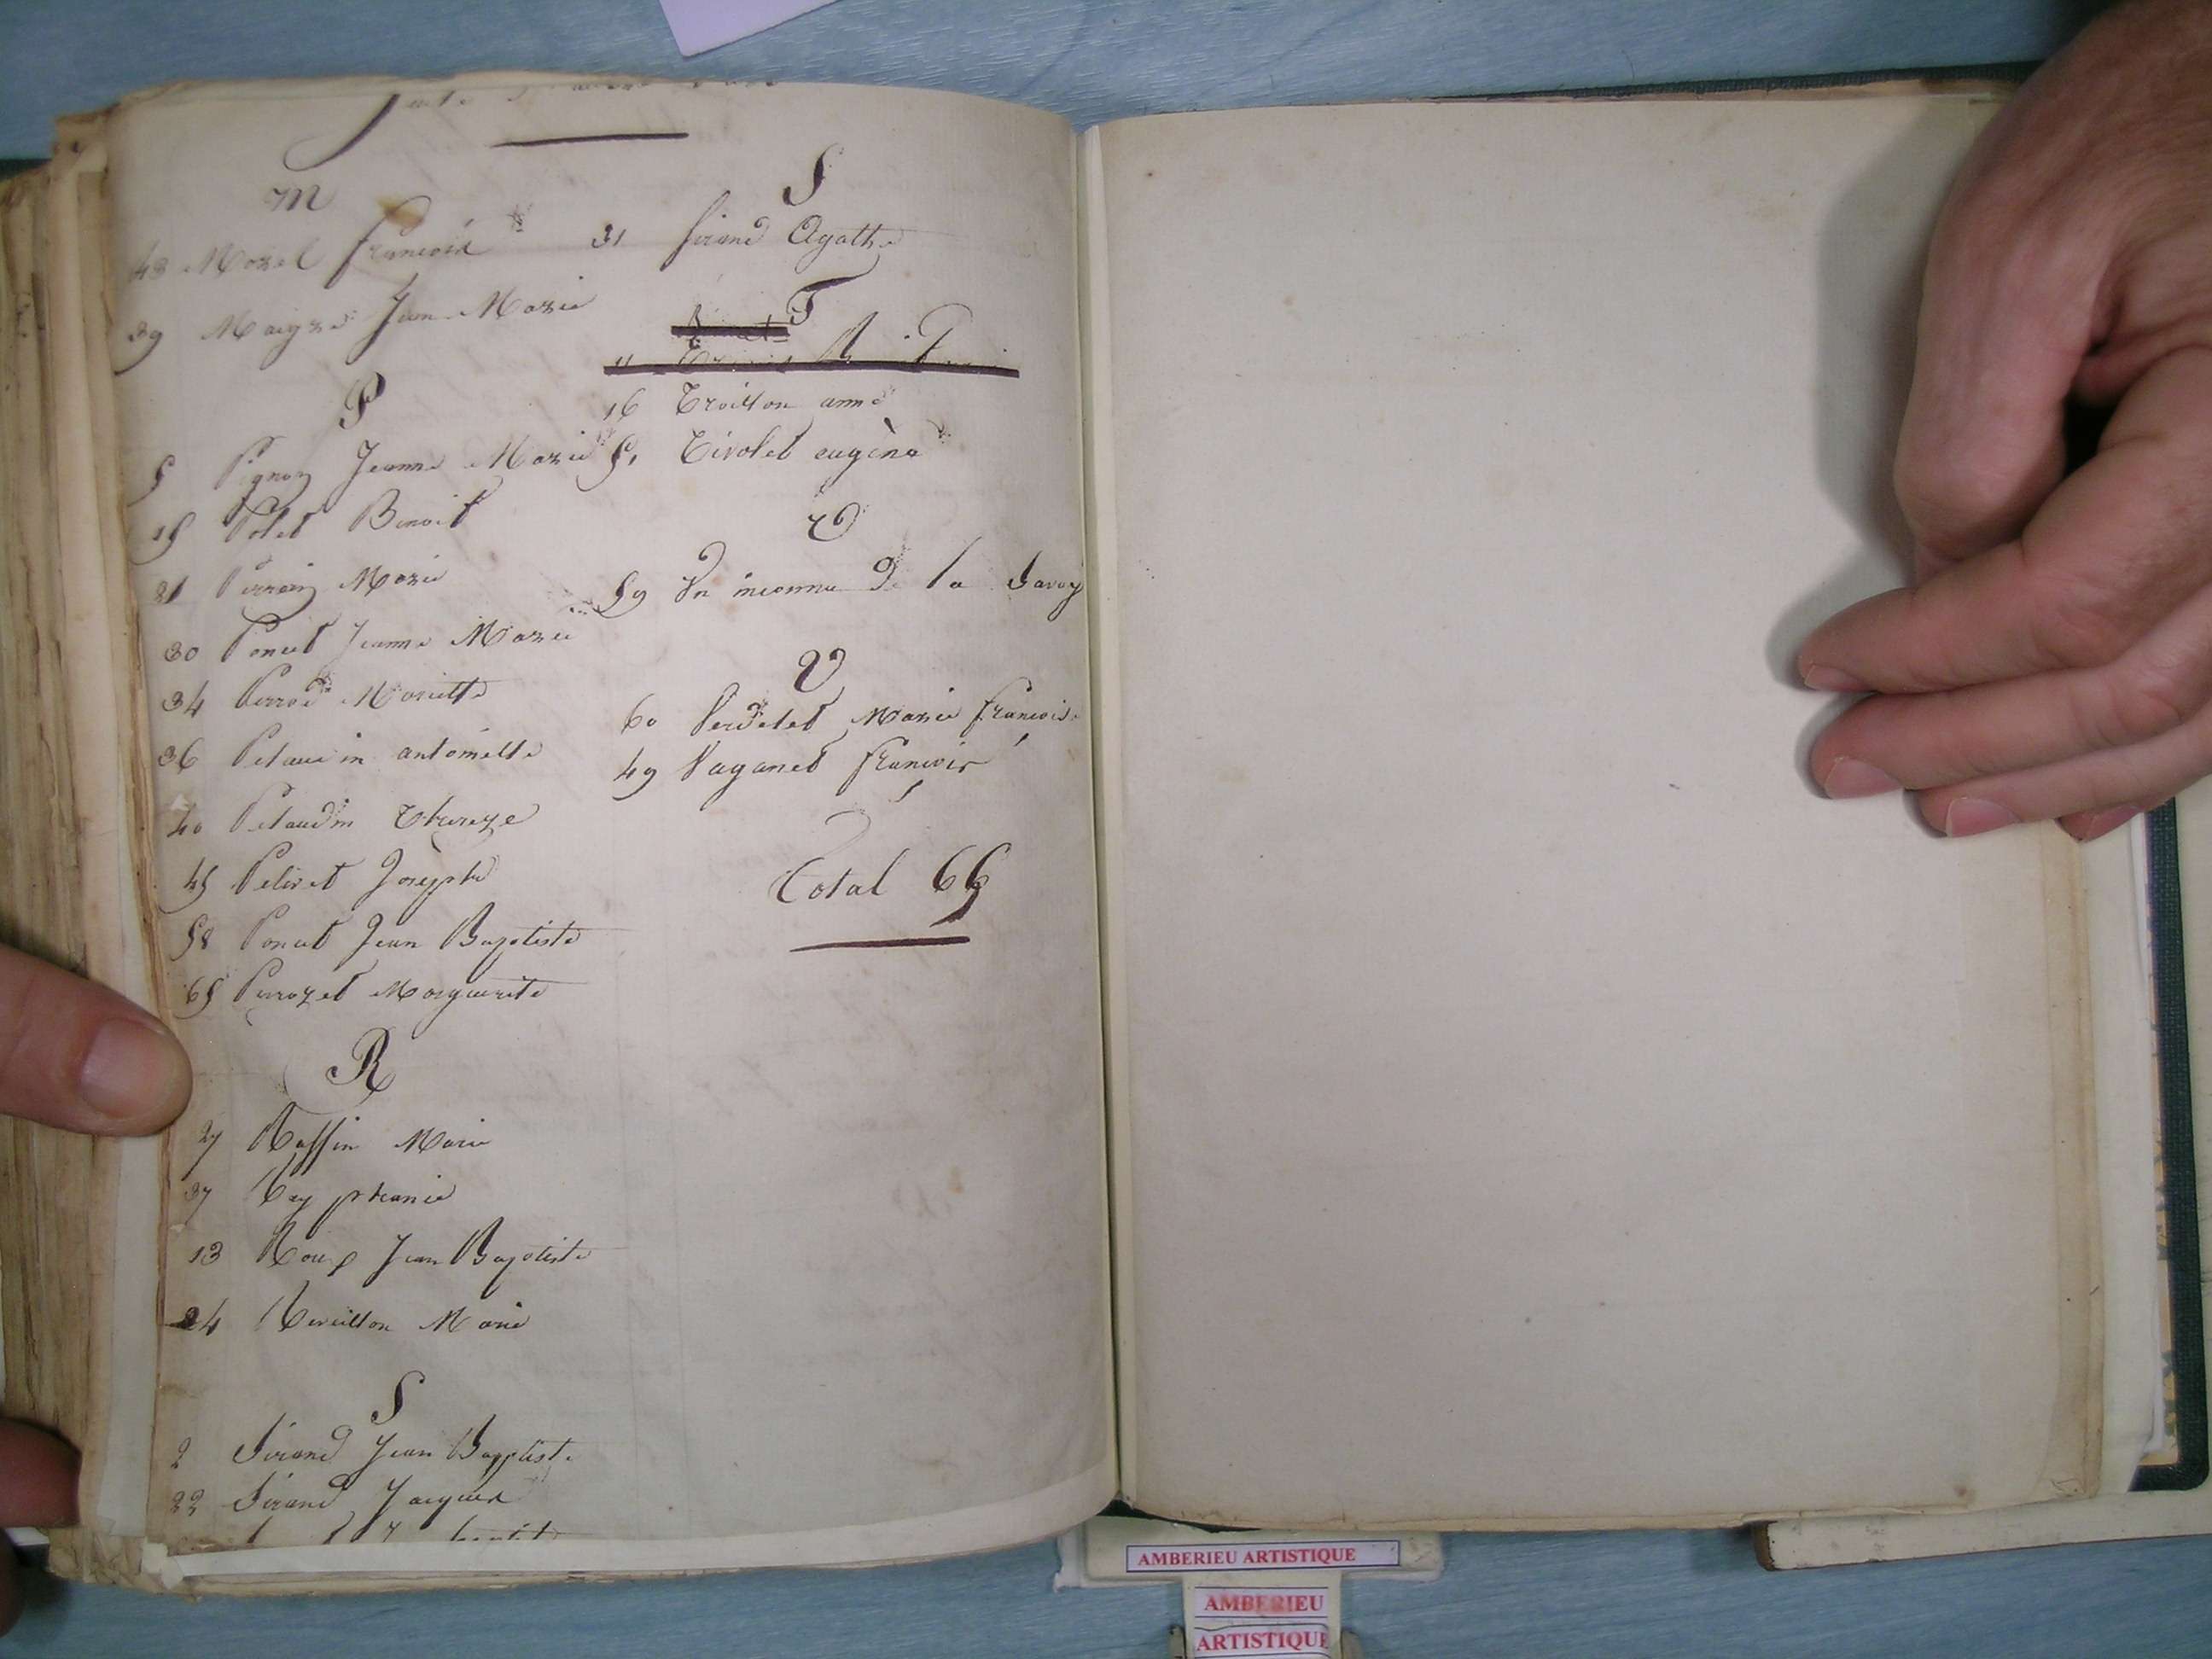 M
48 Morel françois
39 Maigre Jean Marie
P
5 Pignon Jeanne Marie
15 Polet Benoit
21 Perrin Marie
30 Poncet Jeanne Marie
34 Perrod Mariette
36 Petaudin antoinette
40 Petaudin Thereze
45 Pelivet Josephe
58 Poncet Jean Baptiste
65 Perrozet Marguerite
R
27 Raffin Marie
37 Rey phanie
13 Roux Jean Baptiste
24 Reveillon Marie
S
2 Sirand Jean Baptiste
22 Sirand Jacques
S
31 Sirand Agathe
T
16 Troillon anne
51 Tivolet eugène
U
59 Un inconnu de la Savoy
V
60 Verdelet Marie françoise
49 Vaganet françois
Total 65
AMBERIEU ARTISTIQUE
AMBERIEU
ARTISTIQUE